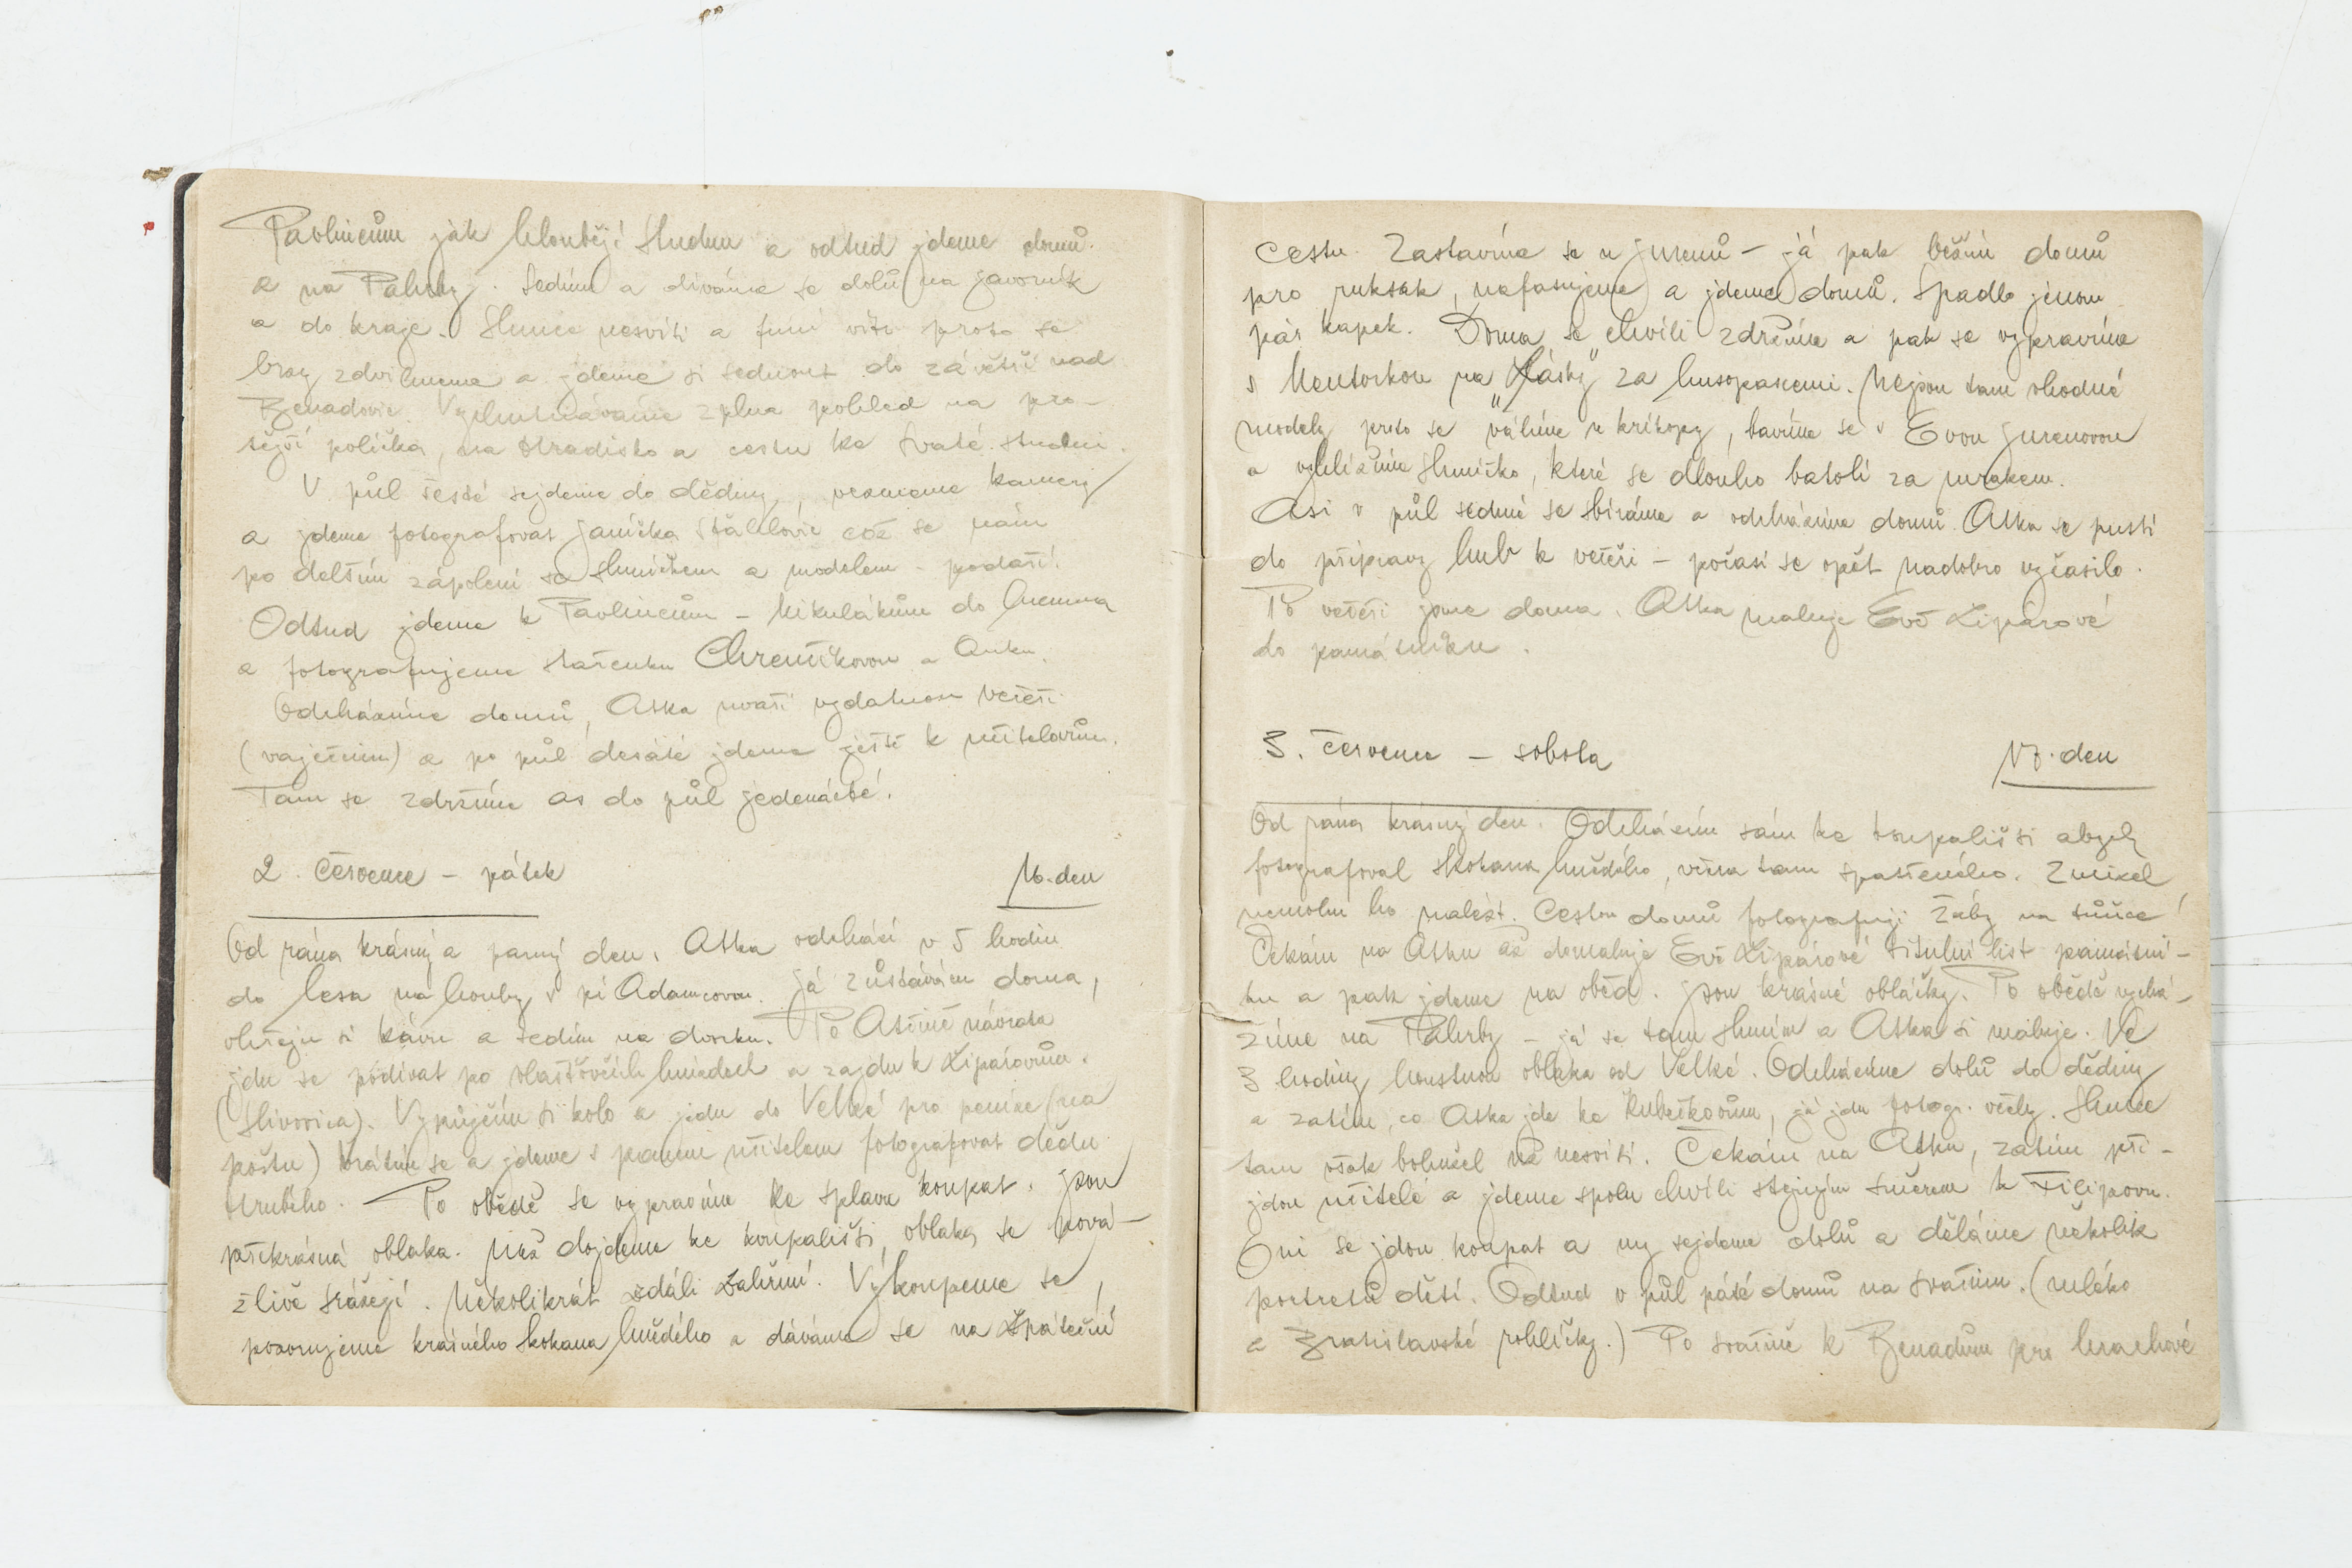 Pavlincům jak hloubějí studnu a odtud jdeme domů
a na Pahrby. Sedíme a díváme se dolů na Javorník
a do kraje. Slunce nesvítí a fučí vítr proto se
brzy zdvihneme a jdeme si sednout do závětří nad
Benadovic. Vychutnáváme zplna pohled na pro-
tější políčka, na Hradisko a cestu ke Svaté studni.
V půl šesté sejdeme do dědiny, vezmeme kamery
a jdeme fotografovat Janíčka což se nám
po delším zápolení se sluníčkem a modelem - podaří!
Odtud jdeme k Pavlincům - Mikulákům do humna
a fotografujeme stařenku Chrenčíkovou a Anku.
Odcházíme domů, Atka uvaří vydatnou večeři
(vaječinu) a po půl desáté jdeme ještě k učitelovům.
Tam se zdržíme as do půl jedenácté.
2. července - pátek 16. den
Od rána krásný a parný den. Atka odchází v 5 hodin
do lesa na houby s pí Adamcovou. Já zůstávám doma,
ohřeju si kávu a sedím na dvorku. Po Atčině návratu
jdu se podívat po vlaštovčích hnízdech a zajdu k Lipárovům.
(Slivovica). Vypůjčím si kolo a jedu do Velké pro peníze (na
poštu) Vrátím se a jdeme s panem učitelem fotografovat dědu
Hrubého. Po obědě se vypravíme ke splavu koupat. Jsou
překrásná oblaka. Než dojdeme ke koupališti, oblaka se pová-
žlivě srážejí. Několikrát zdáli zahřmí. Vykoupeme se,
pozorujeme krásného skokana hnědého a dáváme se na zpáteční
cestu. Zastavíme se u Jurenů - já pak běžím domů
pro ruksak, nafasujeme a jdeme domů. Spadlo jenom
pár kapek. Doma se chvíli zdržíme a pak se vypravíme
s Mentorkou na „Kásky“ za husopasemi. Nejsou tam vhodné
modely proto se válíme u kríkopy, bavíme se s Evou Jurenovou
a vyhlížíme sluníčko, které se dlouho batolí za mrakem.
Asi v půl sedmé se sbíráme a odcházíme domů. Atka se pustí
do přípravy hub k večeři - počasí se opět nadobro vyčasilo.
Po večeři jsme doma. Atka maluje Evě Lipárové
do památníku.
3. července - sobota 17. den
Od rána krásný den. Odcházím sám ke koupališti abych
fotografoval skokana hnědého, včera tam spatřeného. Zmizel
nemohu ho nalézt. Cestou domů fotografuji žáby na tůňce!
Čekám na Atku až domaluje Evě Lipárové titulní list památní-
ku a pak jdeme na oběd. Jsou krásné obláčky. Po obědě vychá-
zíme na Pahrby - já se tam sluním a Atka si maluje. Ve
3 hodiny houstnou oblaka od Velké. Odcházíme dolů do dědiny
a zatím, co Atka jde ke Kubečkovům, já jdu fotogr. včely. Slunce
tam však bohužel už nesvítí. Čekám na Atku, zatím při-
jdou učitelé a jdeme spolu chvíli stejným směrem k Filipovu.
Oni se jdou koupat a my sejdeme dolů a děláme několik
portretů dětí. Odtud v půl páté domů na svačinu. (mléko
a Bratislavské rohlíčky.) Po svačině k Benadům pro hrachové